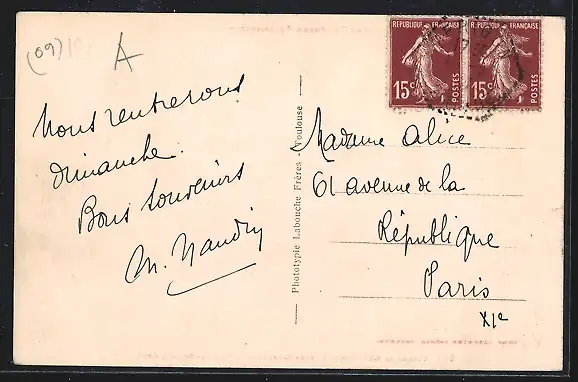 (09)
A
REPUBLIQUE FRANÇAISE
15c POSTES
REPUBLIQUE FRANÇAISE
15c POSTES
Nous rentrerons
dimanche.
Bons souvenirs
M. Naudin
Phototypie Labouche Frères - Toulouse
Madame Alice
61 avenue de la
République
Paris
XIe